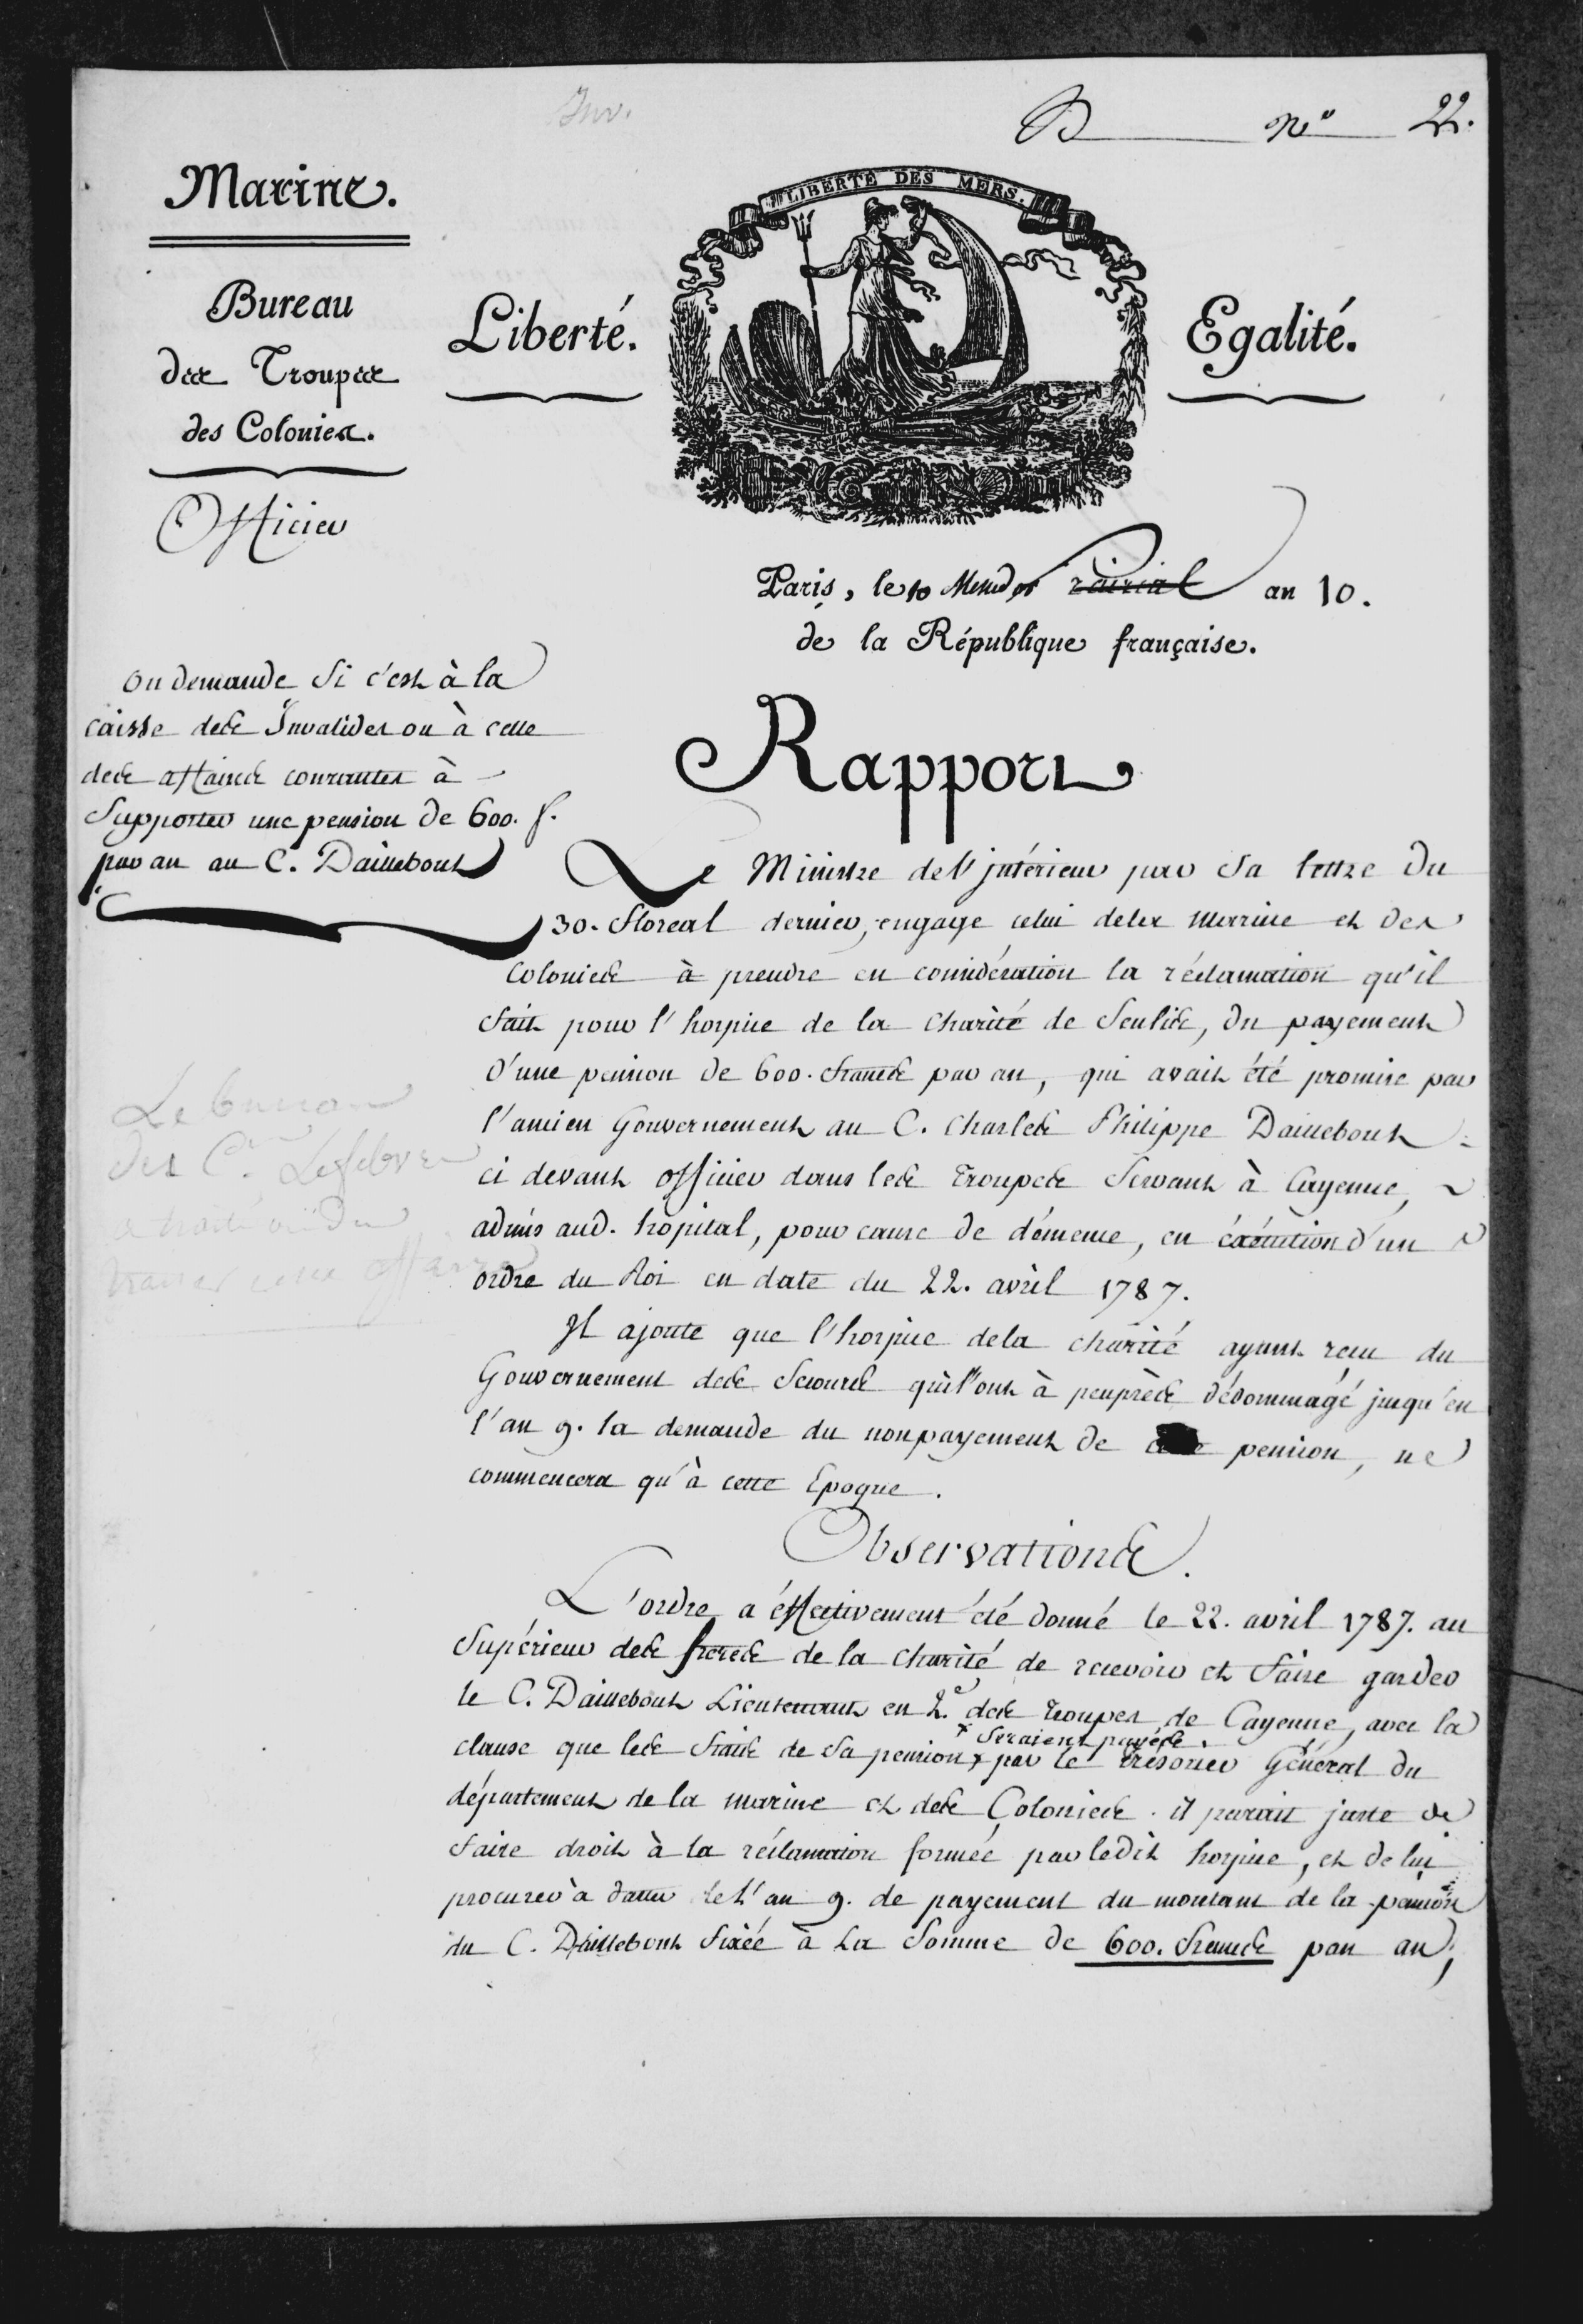 Inv.
B n.º 22.
Marine.
Bureau
des Troupes
des Colonies.
Officier
LIBERTÉ DES MERS.
Liberté.
Egalité.
Paris, le 10 Messidor Prairial an 10.
de la République française.
On demande si c'est à la
caisse des Invalides ou à celle
des affaires courantes à
supporter une pension de 600. f.
par an au C. Daillebout
Rapport
Le Ministre de l'intérieur par sa lettre du
30. floreal dernier, engage celui de la marine et des
Colonies à prendre en considération la réclamation qu'il
fait pour l'hospice de la Charité de Senlis, du payement
d'une pension de 600. francs par an, qui avait été promise par
l'ancien Gouvernement au C. Charles Philippe Daillebout
ci devant officier dans les troupes servant à Cayenne,
admis aud. hôpital, pour cause de démence, en éxécution d'un
ordre du Roi en date du 22. avril 1787.
Il ajoute que l'hospice de la charité ayant recu du
Gouvernement des secours qui l'ont à peuprès dédommagé jusqu'en
l'an 9. la demande du nonpayement de cette pension, ne
commencera qu'à cette Epoque.
Observations.
L'ordre a éffectivement été donné le 22. avril 1787. au
Supérieur des freres de la Charité de recevoir et faire garder
le C. Daillebout Lieutenant en 2.e des troupes de Cayenne, avec la
x seraient payés
clause que les frais de sa pension x par le trésorier Général du
département de la marine et des Colonies. il parait juste de
faire droit à la réclamation formée par ledit hospice, et de lui
procurer à dater de l'an 9. de payement du montant de la pension
du C. Daillebout fixée à la somme de 600. francs par an,
Le bureau
des C.en Lefebvre